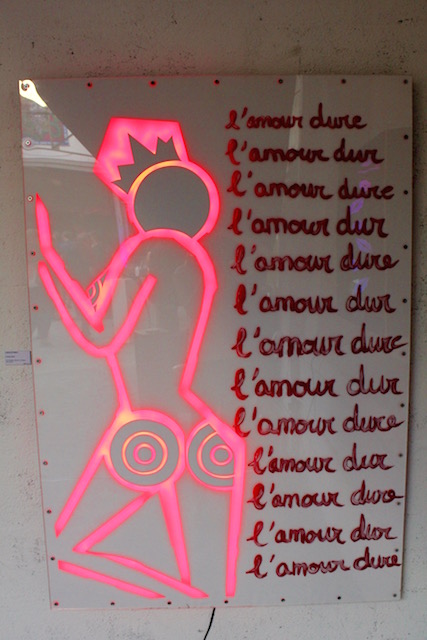 l'amour dure
l'amour dur
l'amour dure
l'amour dur
l'amour dure
l'amour dur
l'amour dure
l'amour dur
l'amour dure
l'amour dur
l'amour dure
l'amour dur
l'amour dure